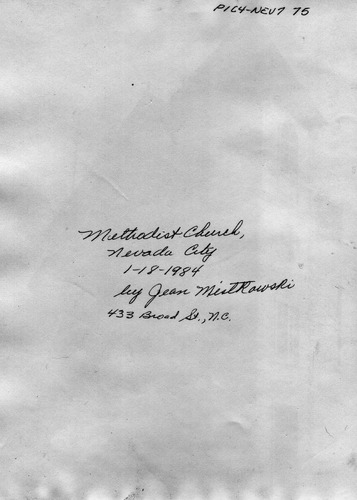 PIC4-NEV7 75
Methodist Church,
Nevada City
1-18-1984
by Jean Mistkowski
433 Broad St., N.C.